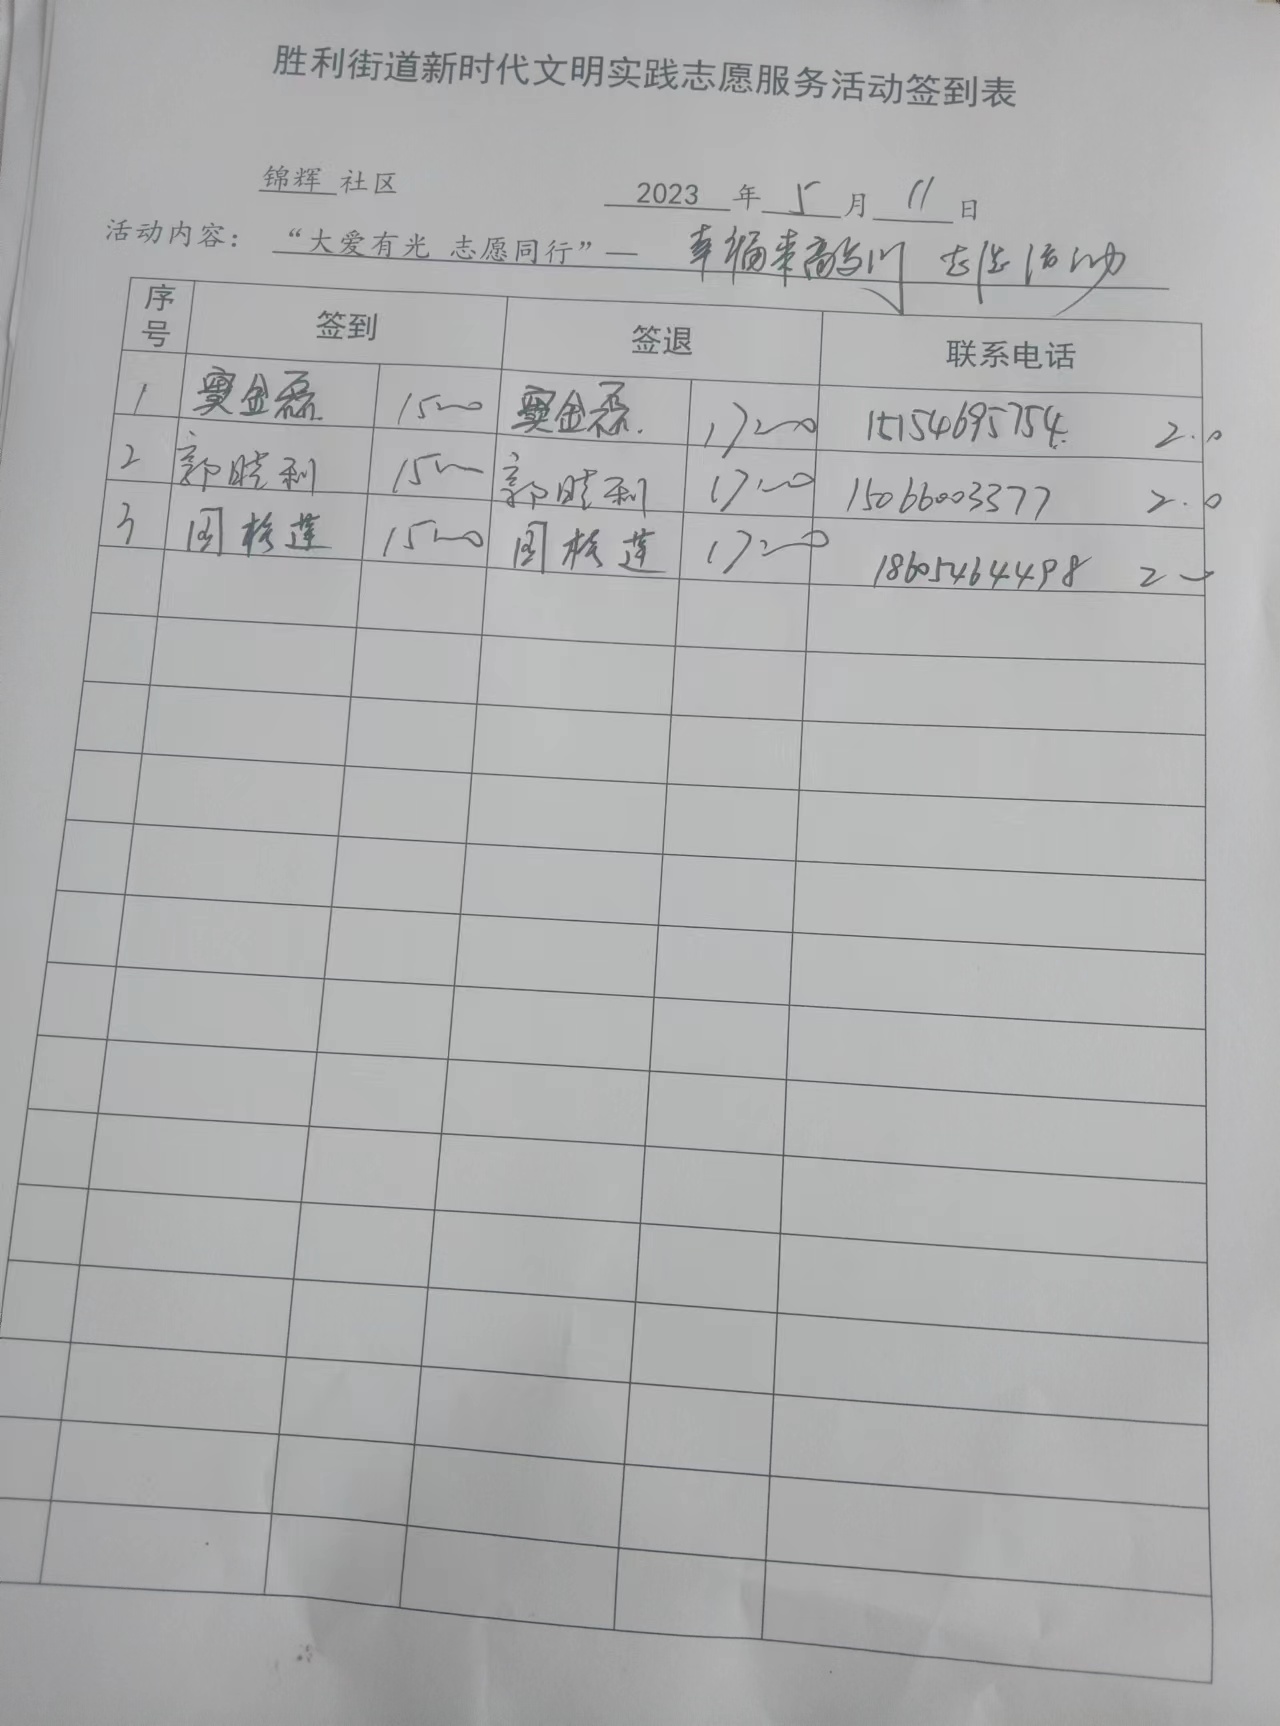 胜利街道新时代文明实践志愿服务活动签到表
锦辉 社区 2023 年 5 月 11 日
活动内容： “大爱有光 志愿同行”— 幸福来敲门 志愿活动
序号 签到 签退 联系电话
1 窦金磊 1500 窦金磊 1700 15154695754 2.0
2 郭晓利 1500 郭晓利 1700 15066003377 2.0
3 周桂莲 1500 周桂莲 1700 18605464498 2.0